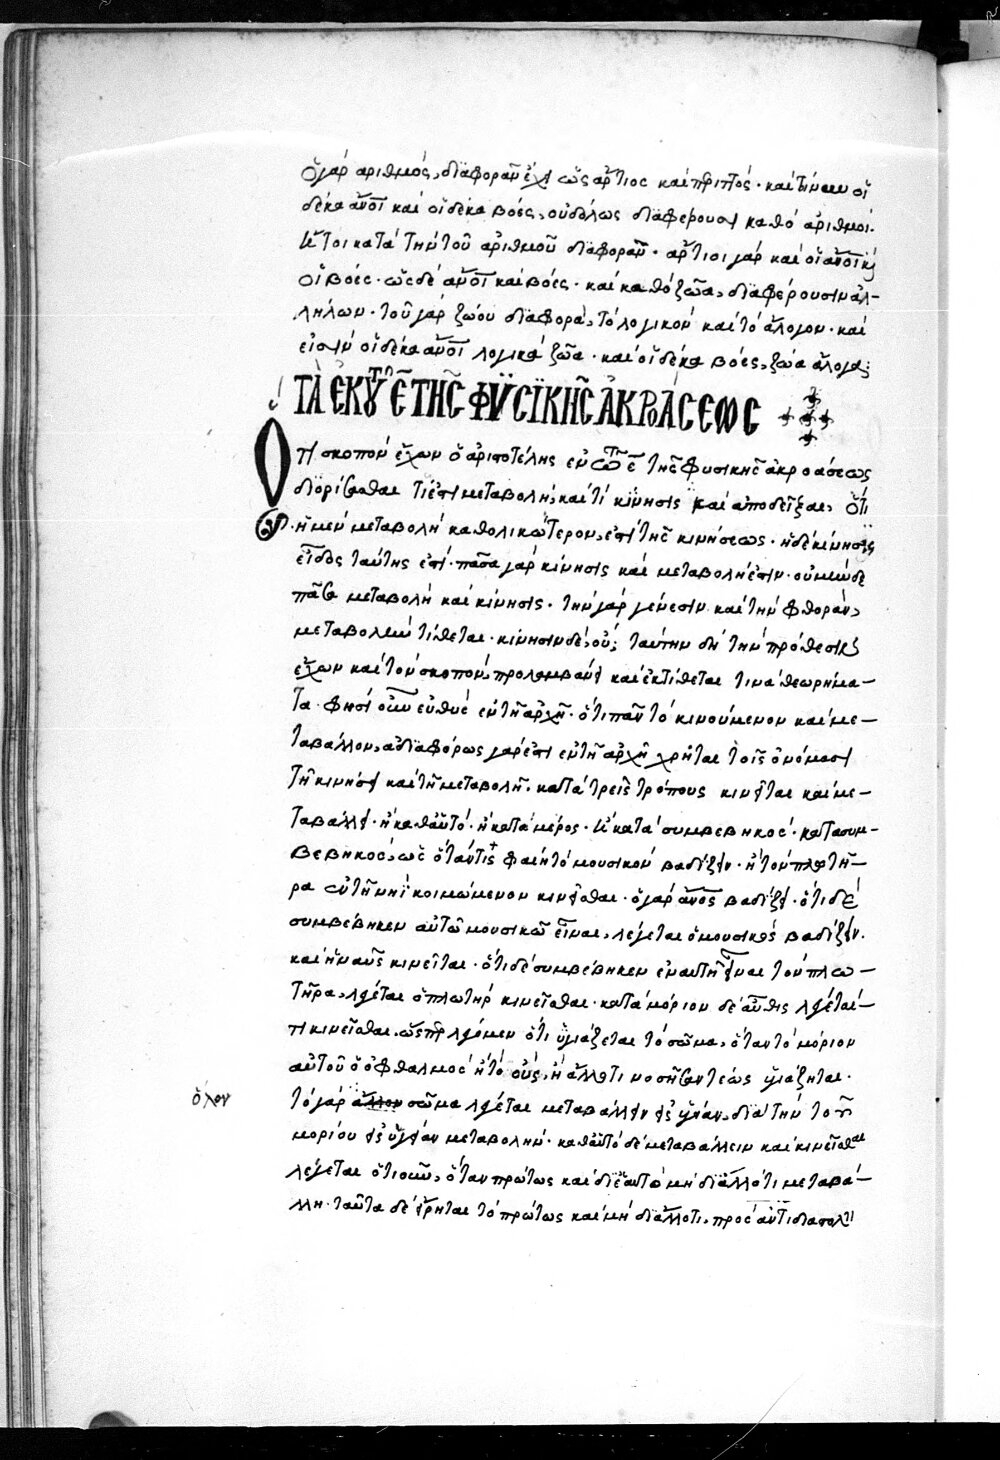 ὁ γὰρ ἀριθμὸς, διαφορὰν ἔχει ὡς ἄρτιος καὶ περιττός· καὶ
δέκα ἄνοι καὶ οἱ δέκα βόες, οὐδόλως διαφέρουσι καθό ἀριθμοί.
ἤτοι κατὰ τὴν τοῦ ἀριθμοῦ διαφοράν· ἄρτιοι γὰρ καὶ οἱ ἄνοι κ
οἱ βόες· ὡς δὲ ἄνοι καὶ βόες· καὶ καθὸ ζῶα, διαφέρουσιν ἀλ-
λήλων· τοῦ γὰρ ζώου διαφορὰ, τὸ λογικὸν καὶ τὸ ἄλογον· καὶ
εἰσὶν οἱ δέκα ἄνοι λογικὰ ζῶα· καὶ οἱ δέκα βόες, ζῶα ἄλογα:
ΤᾺ ἘΚ ΤΟΥ Ε ΤΗΣ ΦΥΣΙΚΗΣ ἈΚΡΟΆΣΕΩΣ
Ὅτι σκοπὸν ἔχων ὁ ἀριστοτέλης ἐν τῶ ε τῆς φυσικῆς ἀκροάσεως
διορίσασθαι τί ἐστι μεταβολὴ, καὶ τί κίνησις καὶ ἀποδεῖξαι, ὅτι
ἡ μὲν μεταβολὴ καθολικώτερον, ἐστὶ τῆς κινήσεως· ἡ δὲ κίνησις
εἶδος ταύτης ἐστί· πᾶσα γὰρ κίνησις καὶ μεταβολή ἐστιν· οὐ μὴν δὲ
πᾶσα μεταβολὴ καὶ κίνησις· τὴν γὰρ γένεσιν καὶ τὴν φθορὰν,
μεταβολὴν τίθεται· κίνησιν δὲ, οὔ; ταύτην δὴ τὴν πρόθεσιν
ἔχων καὶ τὸν σκοπὸν, προλαμβάνει καὶ ἐκτίθεται τινὰ θεωρήμα-
τα· φησὶ οὖν εὐθὺς ἐν τῆ ἀρχῆ· ὅτι πᾶν τὸ κινούμενον καὶ με-
ταβάλλον, ἀδιαφόρως γὰρ ἔτι ἐν τῆ ἀρχῆ χρῆται τοῖς ὀνόμασι
τῆ κινήσει καὶ τῆ μεταβολῆ· κατὰ τρεῖς τρόπους κινεῖται καὶ με-
ταβάλλει· ἢ καθαὑτὸ· ἢ κατὰ μέρος· ἢ κατὰ συμβεβηκός· κατὰ συμ-
βεβηκὸς, ὡς ὅταν τις φαίη τὸ μουσικὸν βαδίζειν· ἢ τὸν πλωτῆ-
ρα ἐν τῆ νηῒ κοιμώμενον κινεῖσθαι· ὁ γὰρ ἄνος βαδίζει· ὅτι δὲ
συμβέβηκεν αὐτῶ μουσικῶ εἶναι, λέγεται ὁ μουσικὸς βαδίζειν.
καὶ ἡ ναῦς κινεῖται· ὅτι δὲ συμβέβηκεν ἐν αυτῆ εἶναι τὸν πλω-
τῆρα, λέγεται ὁ πλωτὴρ κινεῖσθαι· κατὰ μόριον δὲ αὖθις λέγεταί
τι κινεῖσθαι, ὥσπερ λέγομεν ὅτι ὑγιάζεται τὸ σῶμα, ὅταν τὸ μόριον
αὐτοῦ ὁ ὀφθαλμὸς ἢ τὸ οὖς, ἢ ἄλλο τι νοσῆσαν τέως ὑγιάζηται.
ὅλον
τὸ γὰρ ἄλλον σῶμα λέγεται μεταβάλλειν εἰς ὑγείαν, διὰ τὴν τοῦ
μορίου εἰς ὑγείαν μεταβολήν· καθαὑτὸ δὲ μεταβάλλειν καὶ κινεῖσθαι
λέγεται ὁτιοῦν, ὅταν πρώτως καὶ δι' ἑαυτὸ μὴ δι' ἄλλό τι μεταβά-
λλη· ταῦτα δὲ εἴρηται τὸ πρώτως καὶ μὴ δι' ἄλλο τι, πρὸς ἀντιδιαστολὴ